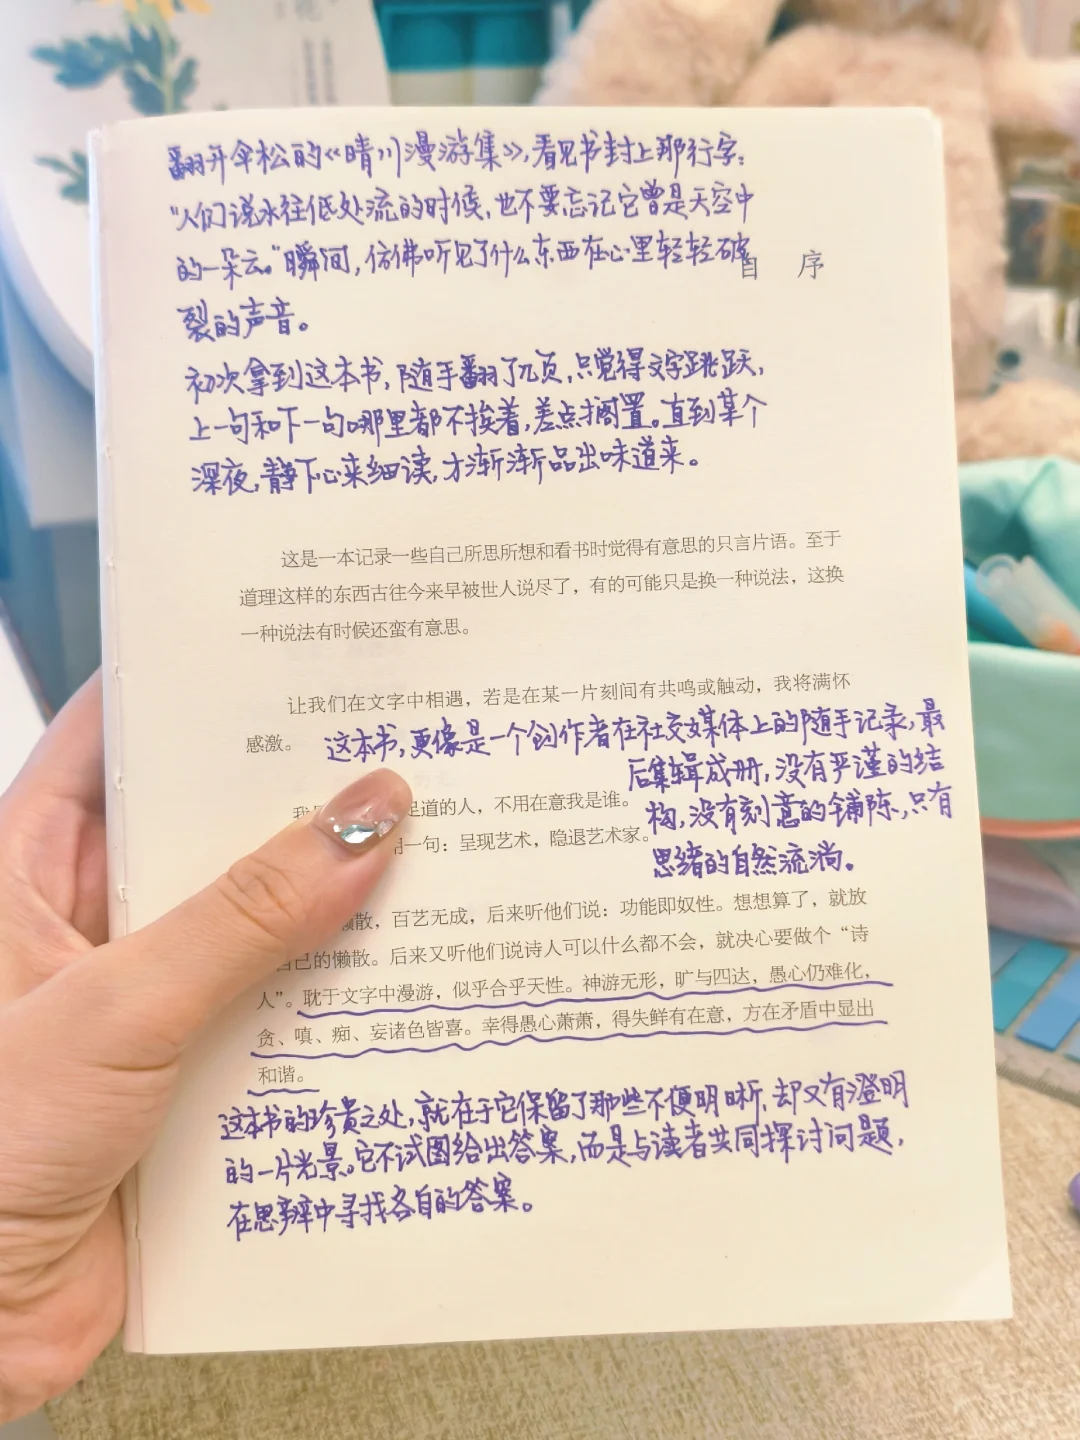 翻开伞松的《晴川漫游集》,看见书封上那行字:
“人们说水往低处流的时候,也不要忘记它曾是天空中
的一朵云。”瞬间,仿佛听见了什么东西在心里轻轻破
裂的声音。
自 序
初次拿到这本书,随手翻了几页,只觉得文字跳跃,
上一句和下一句哪里都不挨着,差点搁置。直到某个
深夜,静下心来细读,才渐渐品出味道来。
这是一本记录一些自己所思所想和看书时觉得有意思的只言片语。至于
道理这样的东西古往今来早被世人说尽了，有的可能只是换一种说法，这换
一种说法有时候还蛮有意思。
让我们在文字中相遇，若是在某一片刻间有共鸣或触动，我将满怀
感激。
这本书,更像是一个创作者在社交媒体上的随手记录,最
后集辑成册,没有严谨的结
构,没有刻意的铺陈,只有
思绪的自然流淌。
我 足道的人，不用在意我是谁。
用一句：呈现艺术，隐退艺术家。
懒散，百艺无成，后来听他们说：功能即奴性。想想算了，就放
自己的懒散。后来又听他们说诗人可以什么都不会，就决心要做个“诗
人”。耽于文字中漫游，似乎合乎天性。神游无形，旷与四达，愚心仍难化，
贪、嗔、痴、妄诸色皆喜。幸得愚心萧萧，得失鲜有在意，方在矛盾中显出
和谐。
这本书的珍贵之处,就在于它保留了那些不便明晰,却又有澄明
的一片光景。它不试图给出答案,而是与读者共同探讨问题,
在思辨中寻找各自的答案。